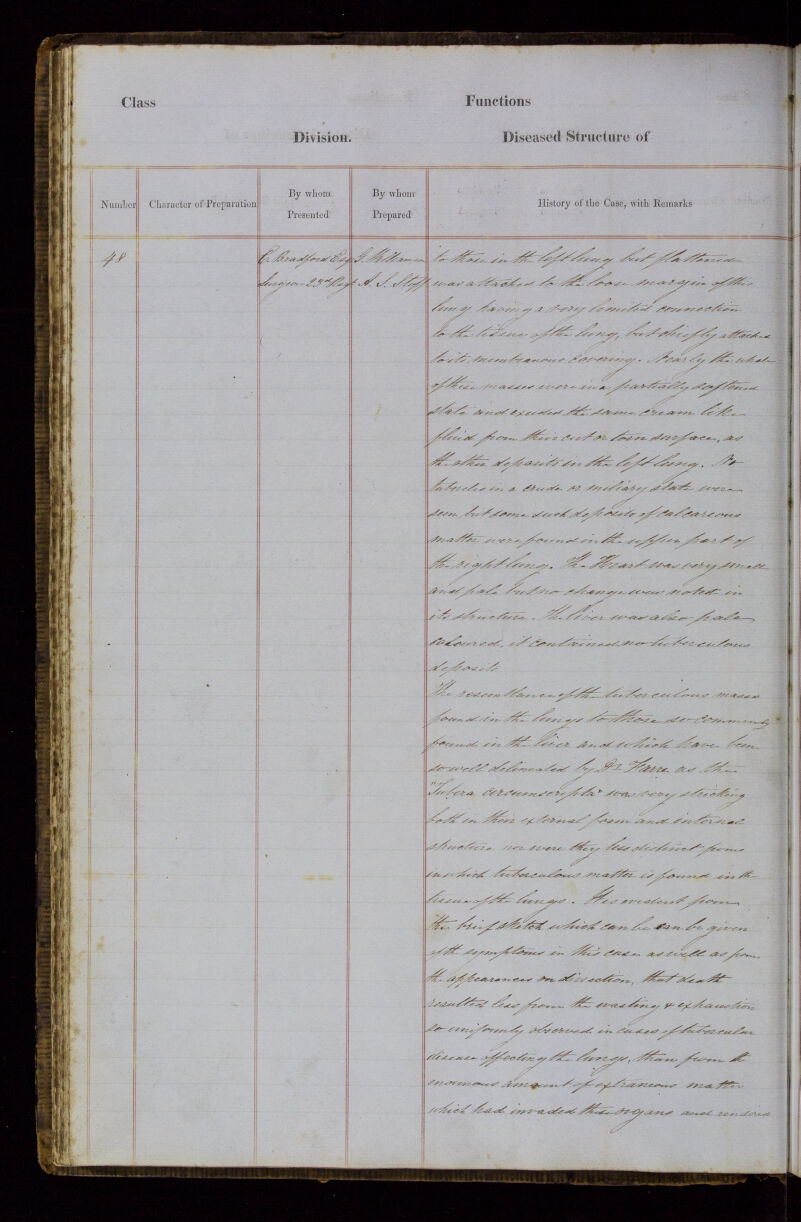 Class
Functions
Division.
Diseased Structure of
Number
Character of Preparation
By whom Presented
By whom Prepared
History of the Case, with Remarks
48
C. Bradford Esq
Surgeon 23rd Regt
G. Williamson
A. S. Staff
to those in the left lung but flattened
was attached to the loose margin of this
lung having a very limited connection
to the tissue of the lung, but chiefly attached
to its membranous covering. Nearly the whole
of these masses were in a partially softened
state and exuded the same cream like
fluid from their cut or torn surface, as
the other deposits in the left lung. No
tubercles in a crude or miliary state were
seen but some such deposits of calcareous
matter were found in the upper part of
the right lung. The Heart was very small
and pale but no change were noted in
its structure. The liver was also pale
coloured, it contained no tuberculous
deposit.
The resemblance of the tuberculous masses
found in the lungs to those so commonly
found in the liver and which have been
so well delineated by Dr Farre as the
"Tubera circumscripta" was very striking
both in their external form and internal
structure nor were they less distinct from
in which tuberculous matter is found in the
tissue of the lungs. It is evident from
the brief sketch which can be can be given
of the symptoms in this case as well as from
the appearances on dissection, that death
resulted less from the wasting & exhaustion
so uniformly observed in cases of tubercular
disease affecting the lungs, than from the
enormous amount of extraneous matter
which had invaded these organs and rendered